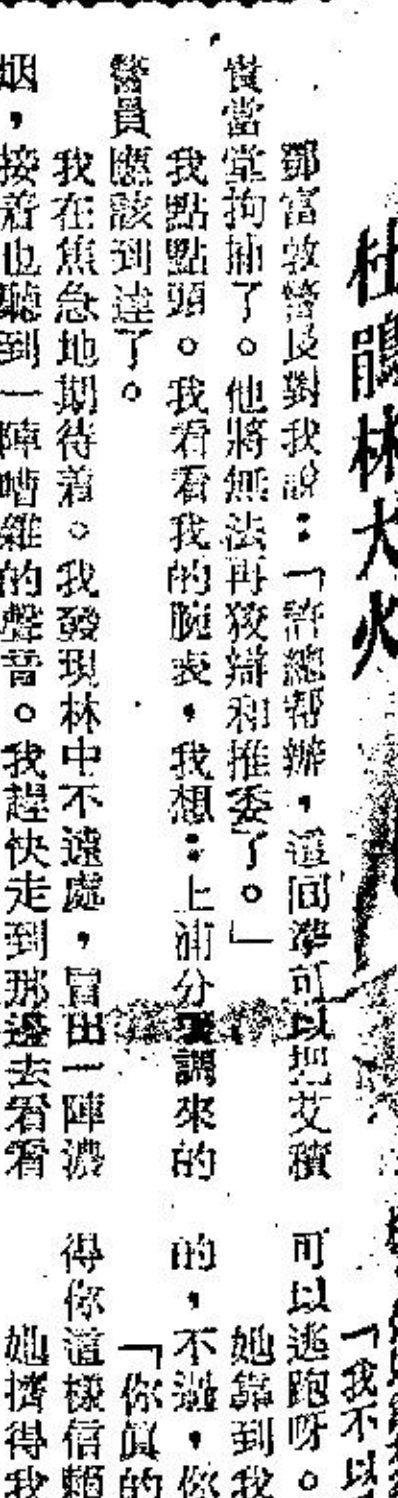 杜鵑林大火
鄧富敦警長對我說：「許總幫辦，這回準可以把艾積
當堂拘捕了。他將無法再狡辯和推委了。」
我點點頭。我看看我的腕表，我想：上浦分調來的
警員應該到達了。
我在焦急地期待着。我發現林中不遠處，冒出一陣濃
烟，接着也聽到一陣嘈雜的聲音。我趕快走到那邊去看看
「我不以
可以逃跑呀。
她靠到我
的，不過，你
「你真的
得你這樣信賴
她擠得我